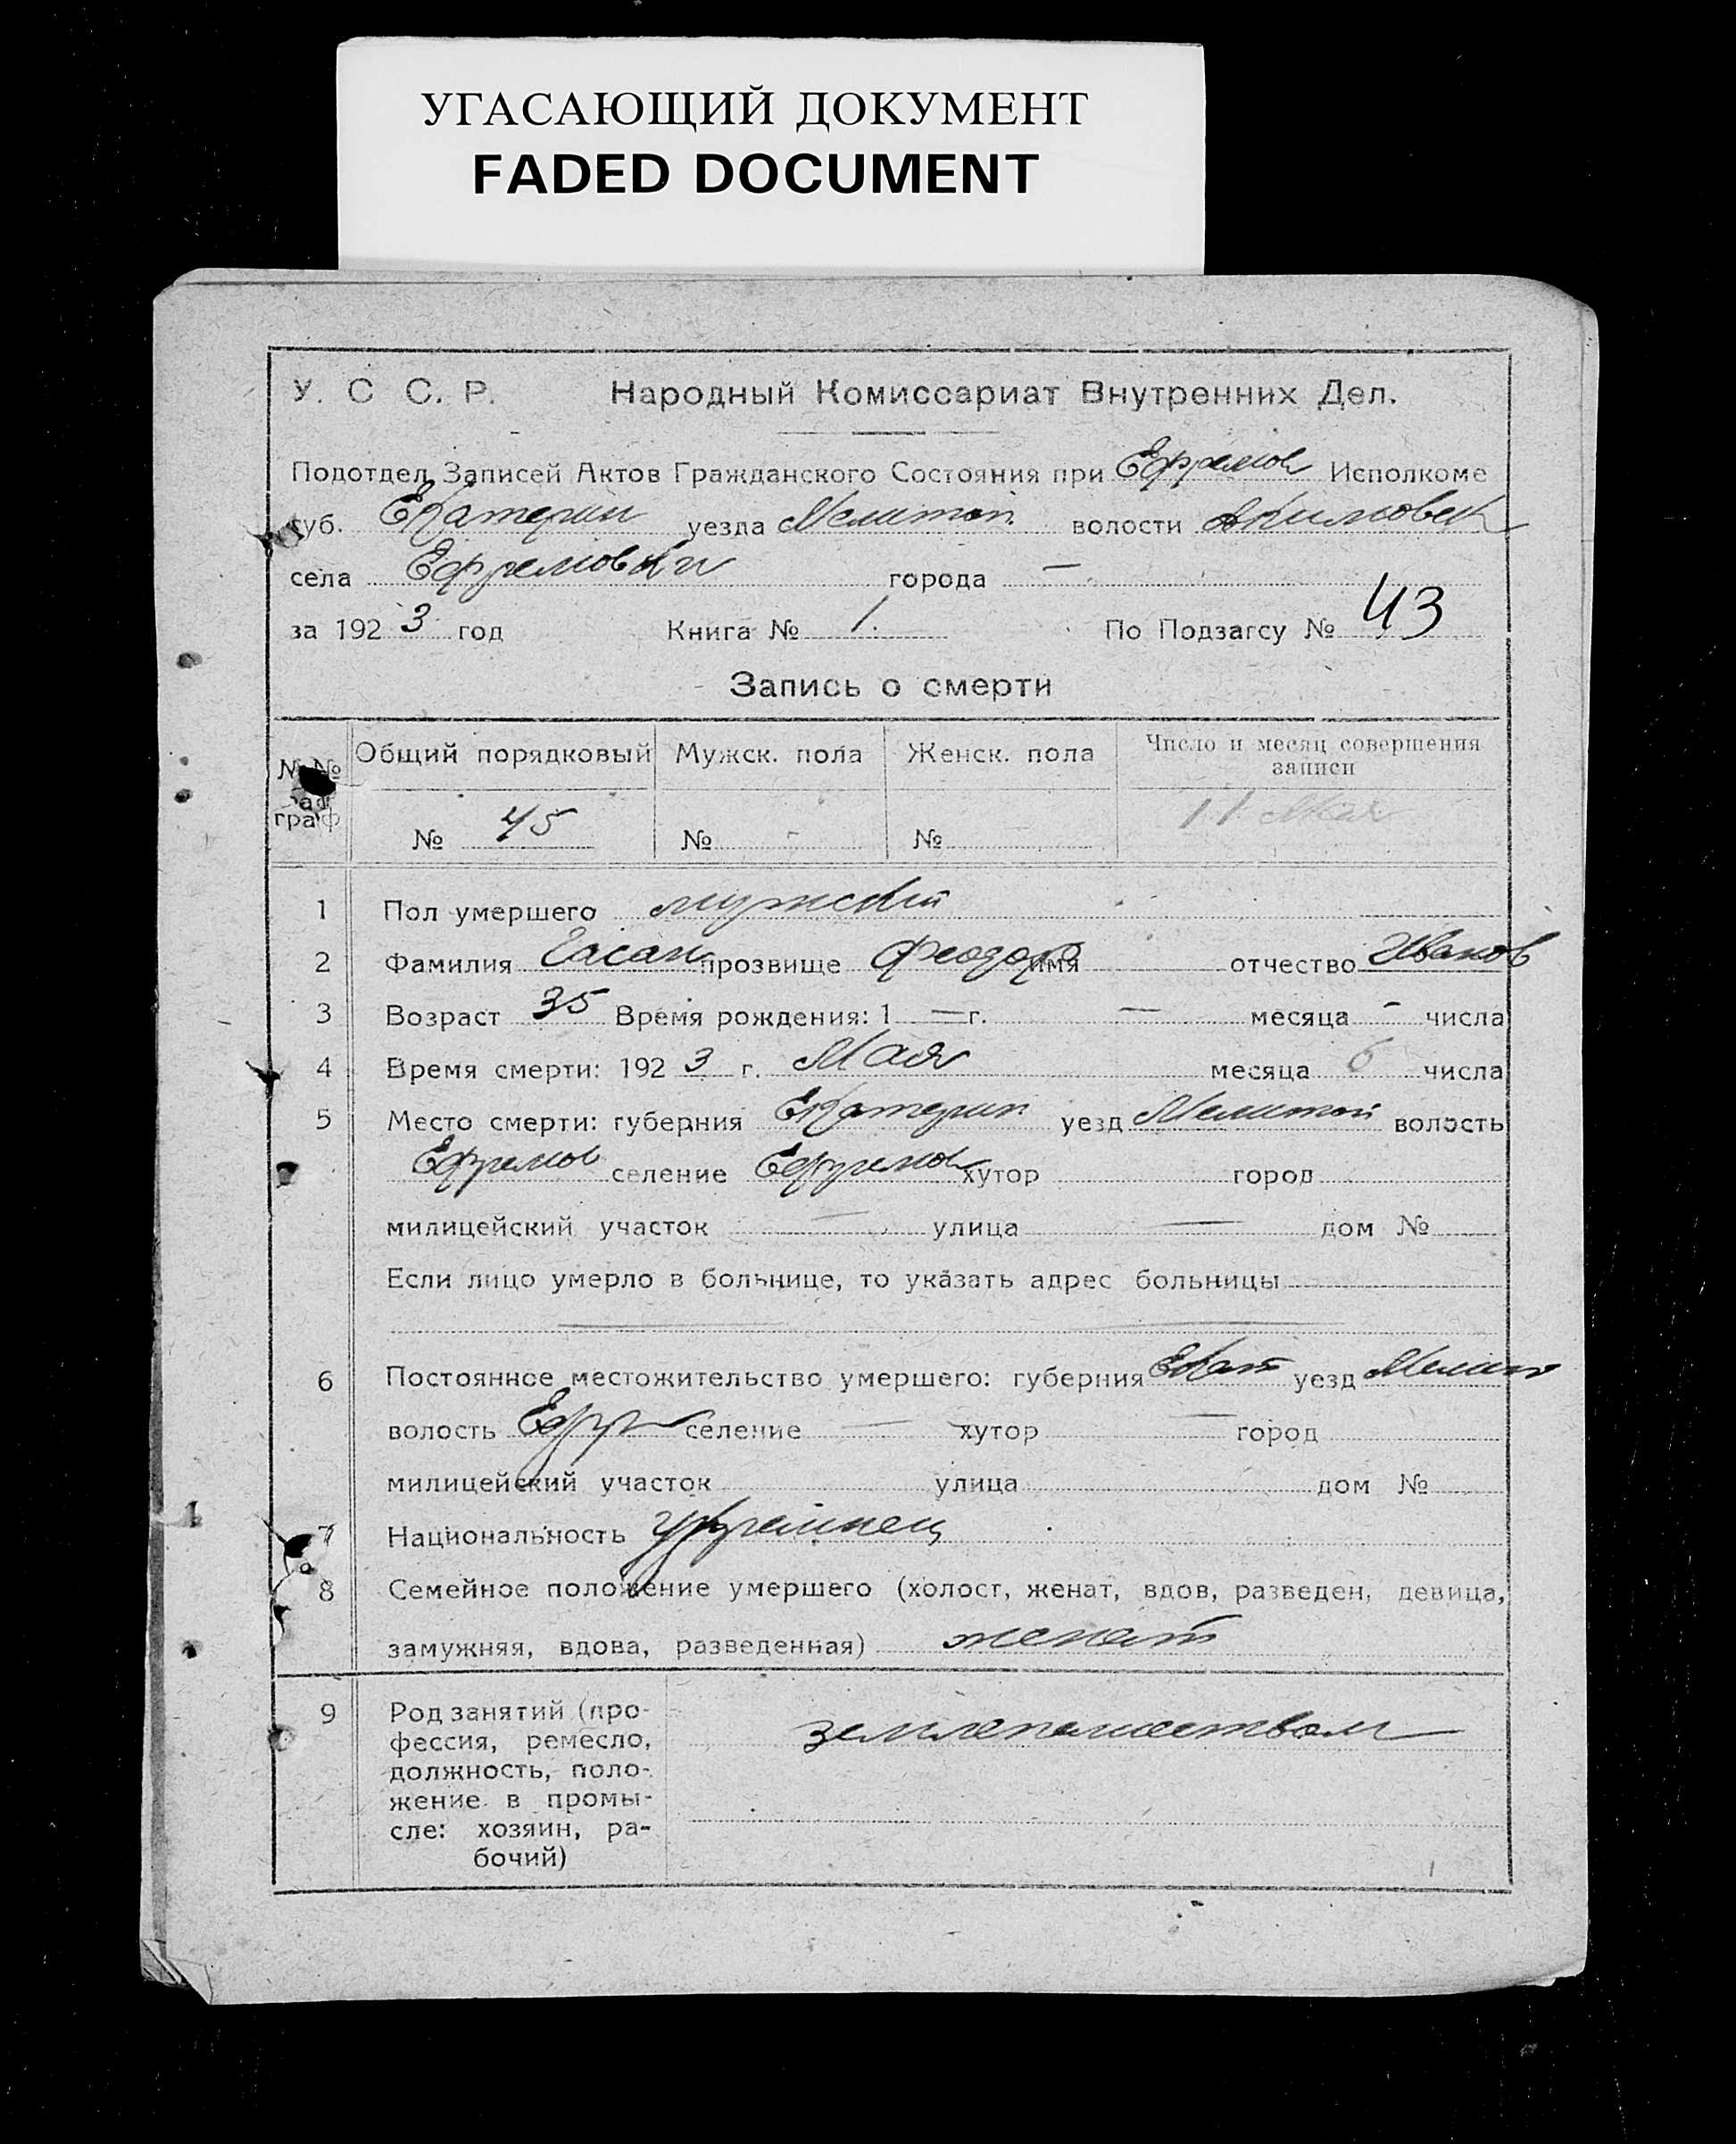 УГАСАЮЩИЙ ДОКУМЕНТ
FADED DOCUMENT
У. С. С. Р. Народный Комиссариат Внутренних Дел.
Подотдел Записей Актов Гражданского Состояния при Ефремов Исполкоме
губ. Екатерин уезда Мелитоп. волости Акимовск
села Ефремовки города —
за 1923 год Книга № 1. По Подзагсу № 43
Запись о смерти
№№ граф Общий порядковый Мужск. пола Женск. пола Число и месяц совершения записи
№ 45 № - № 11 Мая
1 Пол умершего мужский
2 Фамилия Гасан прозвище Феодор имя отчество Иванов
3 Возраст 35 Время рождения: 1 — г. — месяца - числа
4 Время смерти: 1923 г. Мая месяца 6 числа
5 Место смерти: губерния Екатерин уезд Мелитоп волость
Ефремов селение Ефремов хутор город
милицейский участок — улица — дом №
Если лицо умерло в больнице, то указать адрес больницы
6 Постоянное местожительство умершего: губерния Екат уезд Мелит
волость Ефр селение — хутор — город
милицейский участок улица дом №
7 Национальность Украинец
8 Семейное положение умершего (холост, женат, вдов, разведен, девица,
замужняя, вдова, разведенная) женат
9 Род занятий (про-
фессия, ремесло, землепашеством
должность, поло-
жение в промы-
сле: хозяин, ра-
бочий)